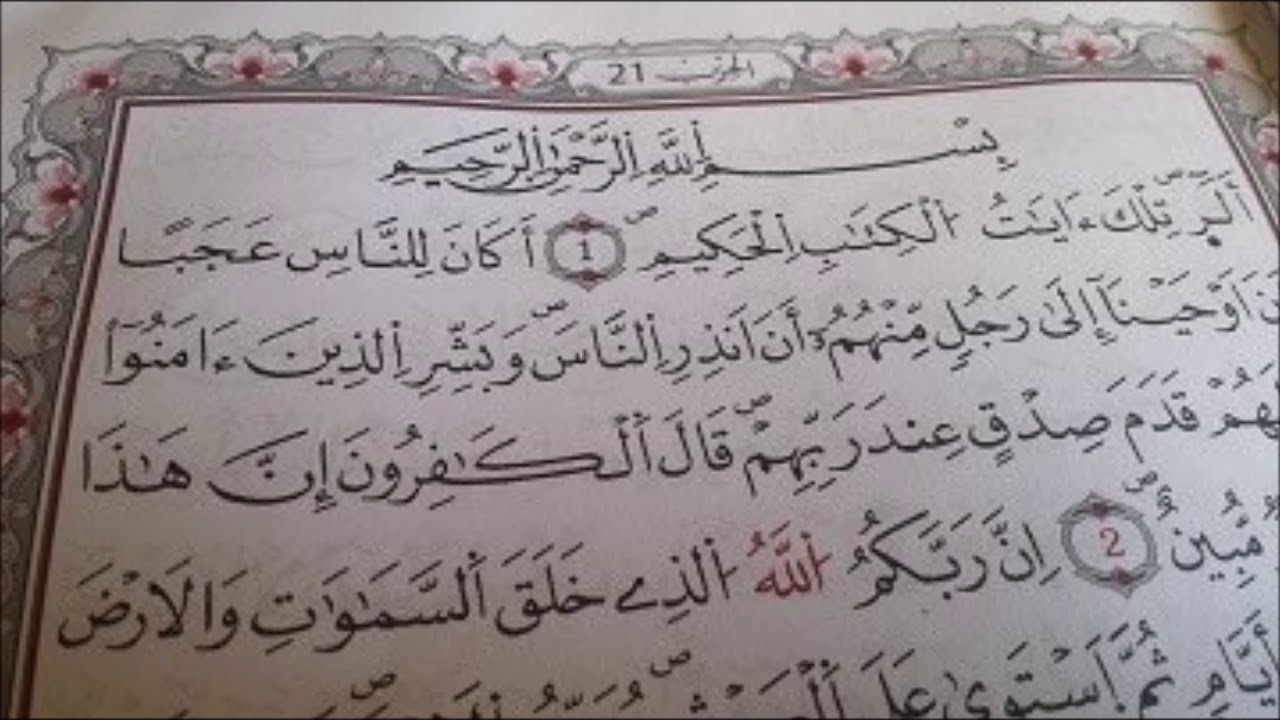 الحزب 21
بِسْمِ اِ۬للَّهِ اِ۬لرَّحْمَٰنِ اِ۬لرَّحِيمِ
أَلَٓر تِلْكَ ءَايَٰتُ اُ۬لْكِتَٰبِ اِ۬لْحَكِيمِ 1 أَكَانَ لِلنَّاسِ عَجَبًا
اَوْحَيْنَآ إِلَىٰ رَجُلٍ مِّنْهُمُۥٓ أَنَ اَنذِرِ اِ۬لنَّاسَ وَبَشِّرِ اِ۬لذِينَ ءَامَنُوٓاْ
قَدَمَ صِدْقٍ عِندَ رَبِّهِمْ قَالَ اَ۬لْكَٰفِرُونَ إِنَّ هَٰذَا
مُّبِينٌ 2 اِنَّ رَبَّكُمُ اُ۬للَّهُ اُ۬لذِے خَلَقَ اَ۬لسَّمَٰوَٰتِ وَالَارْضَ
أَيَّامٍ ثُمَّ اَ۪سْتَوَىٰ عَلَى اَ۬لْعَرْشِ